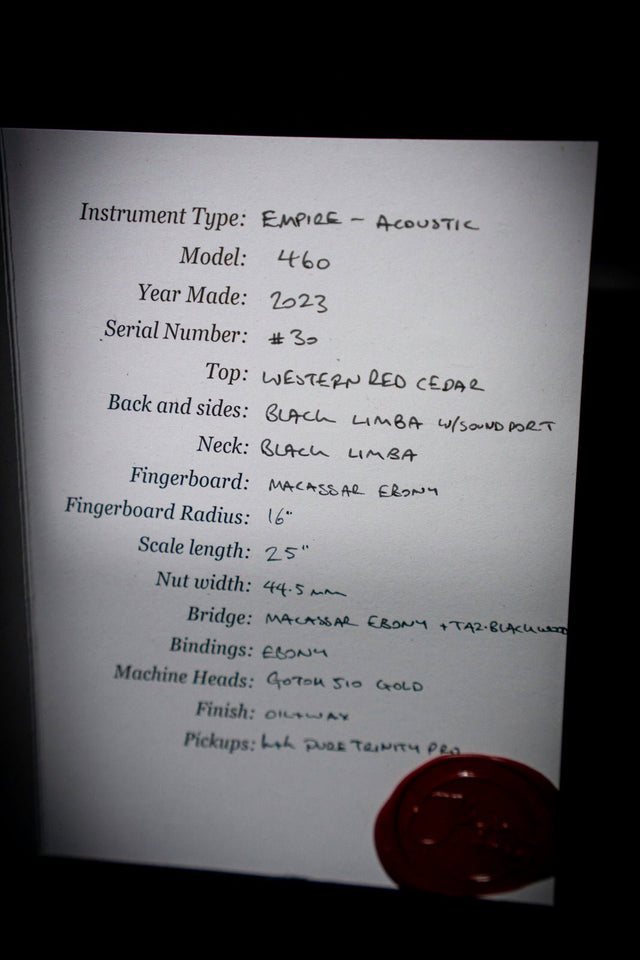 Instrument Type: EMPIRE - ACOUSTIC
Model: 460
Year Made: 2023
Serial Number: #30
Top: WESTERN RED CEDAR
Back and sides: BLACK LIMBA W/SOUNDPORT
Neck: BLACK LIMBA
Fingerboard: MACASSAR EBONY
Fingerboard Radius: 16"
Scale length: 25"
Nut width: 44.5mm
Bridge: MACASSAR EBONY +TAZ.BLACKWOOD
Bindings: EBONY
Machine Heads: GOTOH 510 GOLD
Finish: OIL+WAX
Pickups: K+K PURE TRINITY PRO